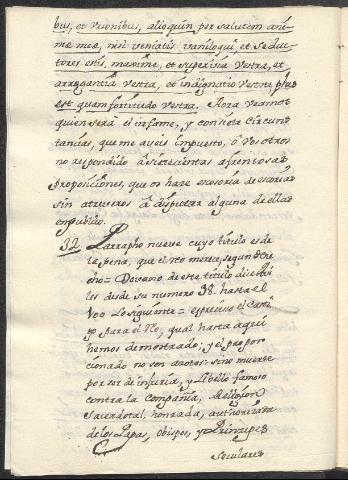 bus, et Visonibus, alioquin per salutem ani-
me mea, nisi veniatis vaniloqui et seduc-
tores estis. maxime, et supervia vestra, et
arrogantia vestra, et indignatio vestre plus
est quam fortitudo vestra. Aora veamos
quien será el infame, y con siete circuns
tancias, que me aveis impuesto, ô vosotros
no respondido â setecientas afrentosas
proposiciones, que os haze
sin atreveros â disputar alguna de ellas
en publico.
32 Parrapho nueve cuyo titulo es de
la pena, que el reo merece, segun dere
cho = De vario de este titulo
les desde su numero 38. hasta el
400 lo siguiente = es preciso el casti
go para el reo, qual hasta aqui
hemos demostrado; y el propor
cionado no son azotes, sino muerte
por ser de injuria, y libelo famoso
contra la Compañia, Religion
Sacerdotal, honrada, authorizada
de los Papas, Obispos, y Principes
Seculares